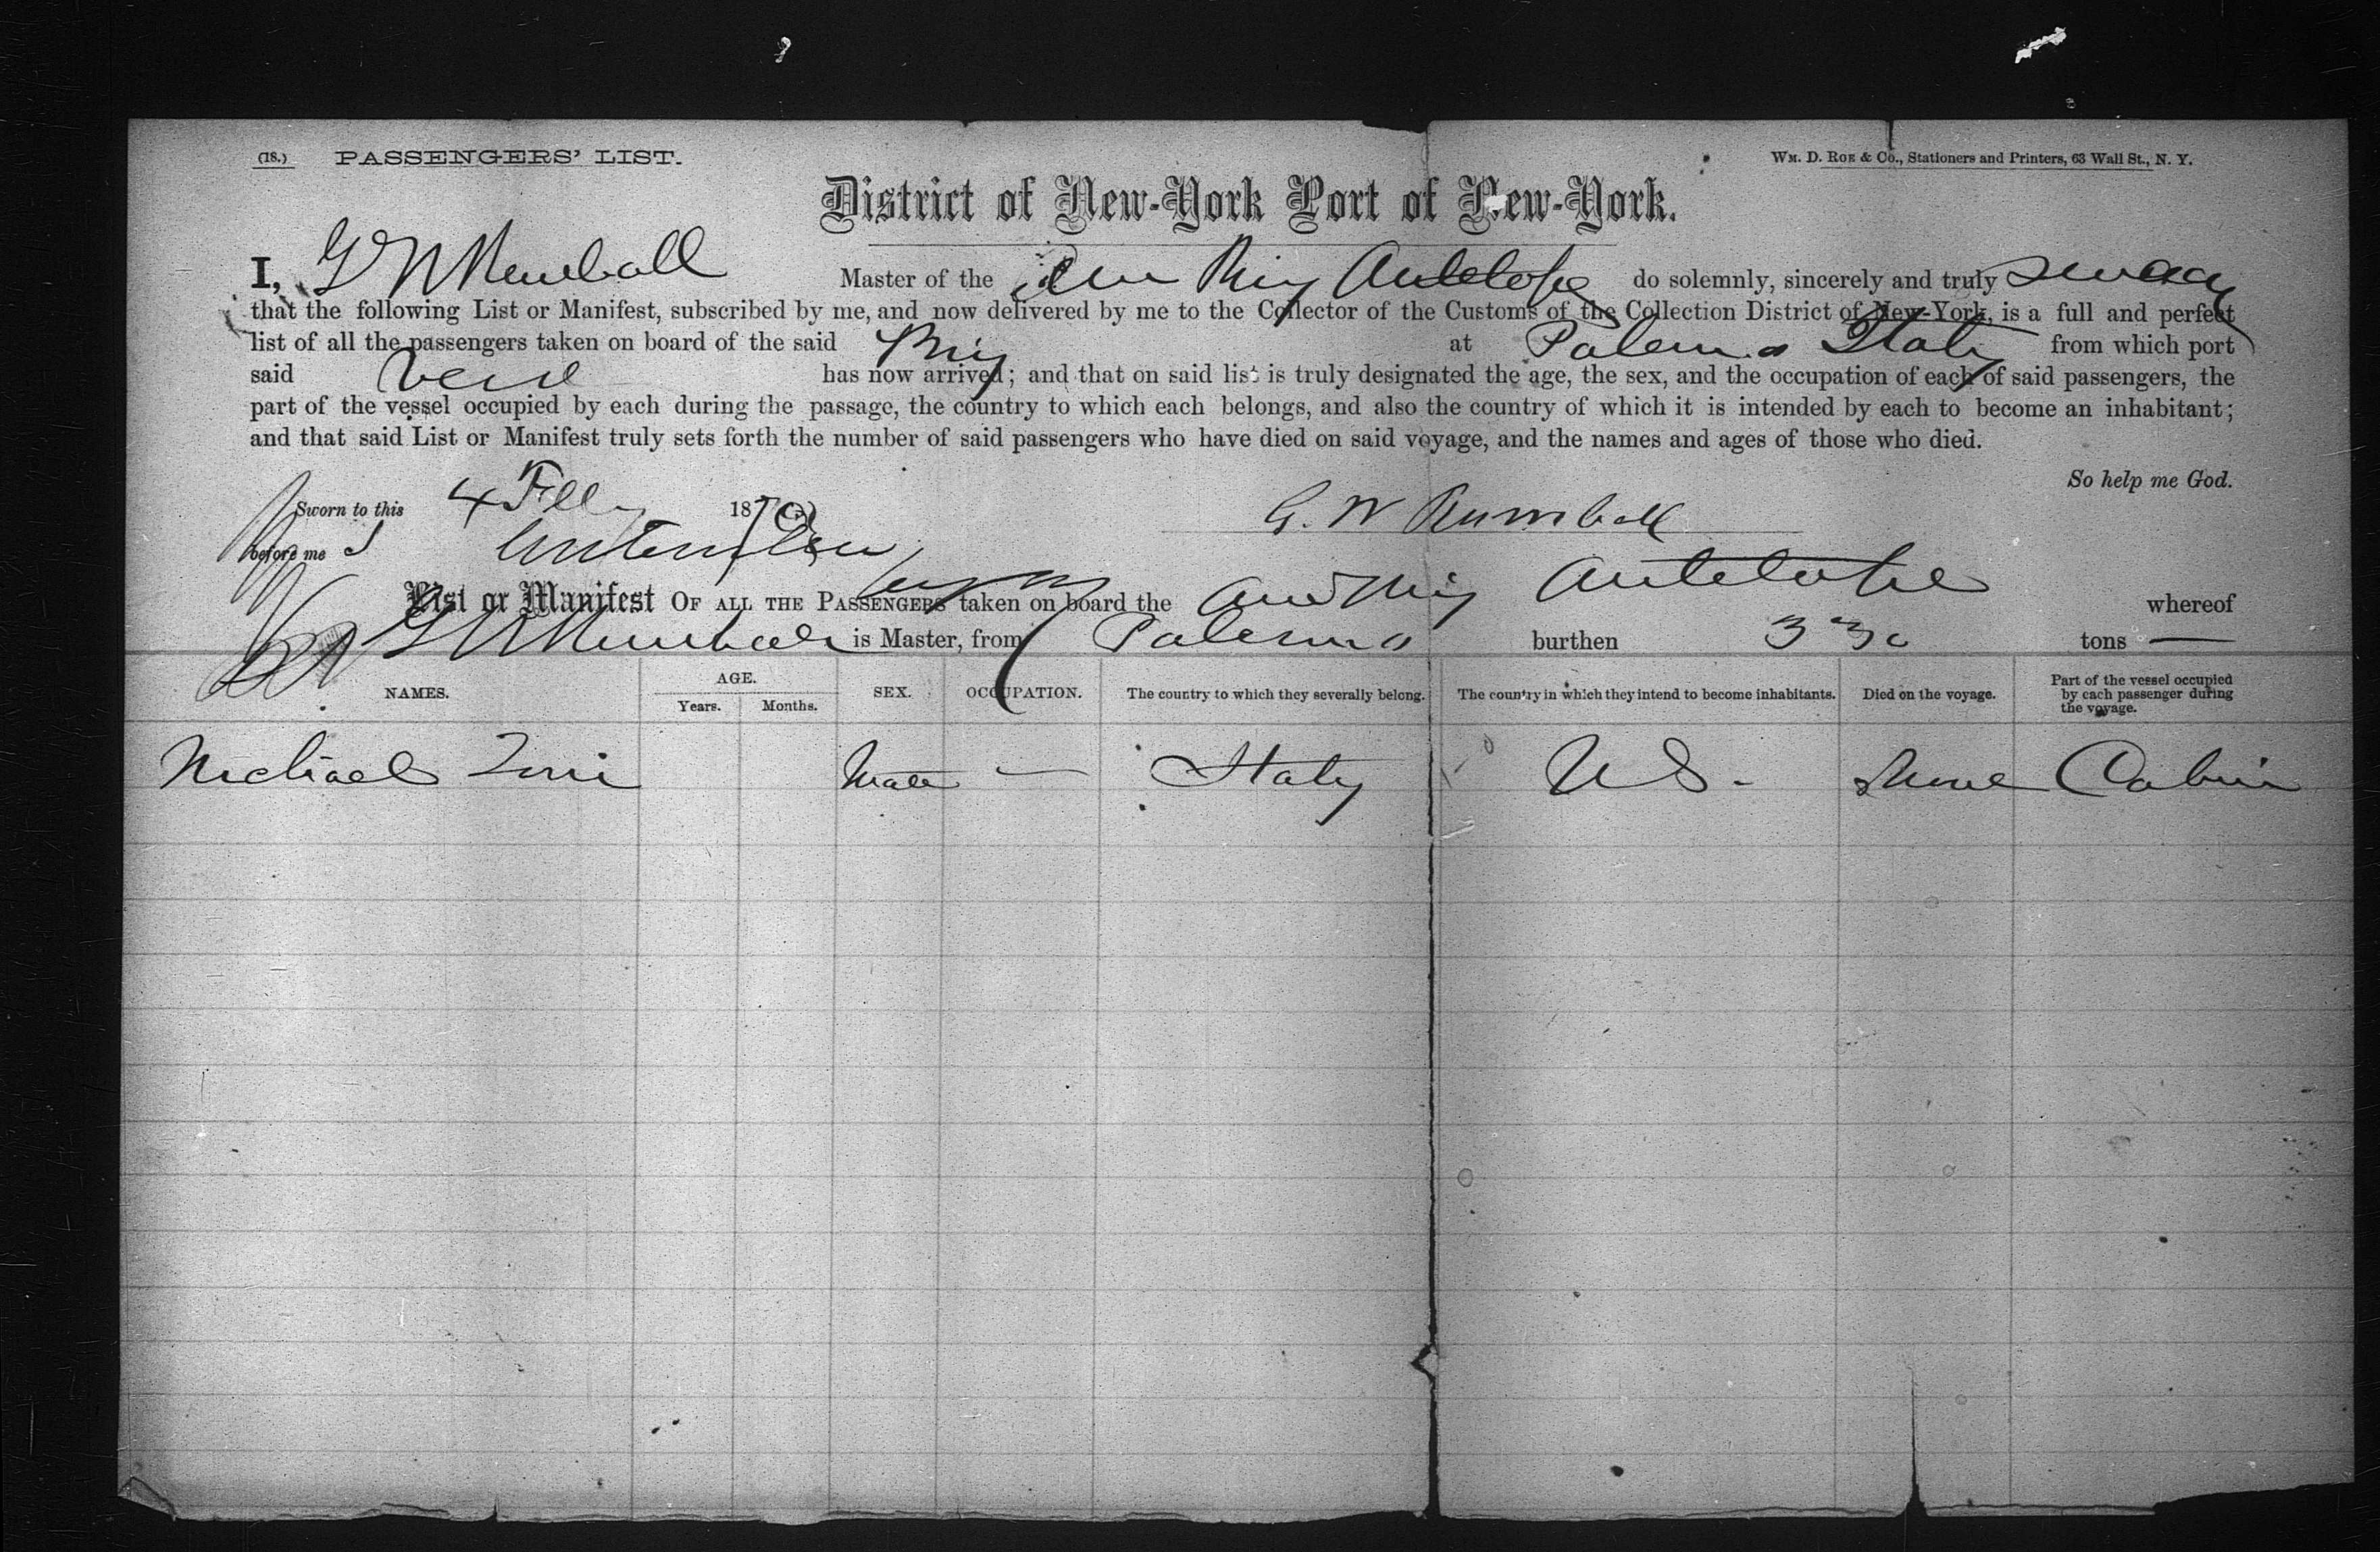 (18.) PASSENGERS' LIST. WM. D. ROE & Co., Stationers and Printers, 63 Wall St., N. Y.
District of New-York Port of New-York.
I, G W Rumball Master of the Am Brig Antelope do solemnly, sincerely and truly swear
that the following List or Manifest, subscribed by me, and now delivered by me to the Collector of the Customs of the Collection District of New-York, is a full and perfect
list of all the passengers taken on board of the said Brig at Palermo Italy from which port
said Vessel has now arrived; and that on said list is truly designated the age, the sex, and the occupation of each of said passengers, the
part of the vessel occupied by each during the passage, the country to which each belongs, and also the country of which it is intended by each to become an inhabitant;
and that said List or Manifest truly sets forth the number of said passengers who have died on said voyage, and the names and ages of those who died.
So help me God.
Sworn to this 4 Feby 1870 G. W Rumball
before me
List or Manifest OF ALL THE PASSENGERS taken on board the Am Brig Antelope whereof
G W Rumball is Master, from Palermo burthen 330 tons —
NAMES. AGE. SEX. OCCUPATION. The country to which they severally belong. The country in which they intend to become inhabitants. Died on the voyage. Part of the vessel occupied by each passenger during the voyage.
Years. Months.
Michael Male — Italy U S. None Cabin